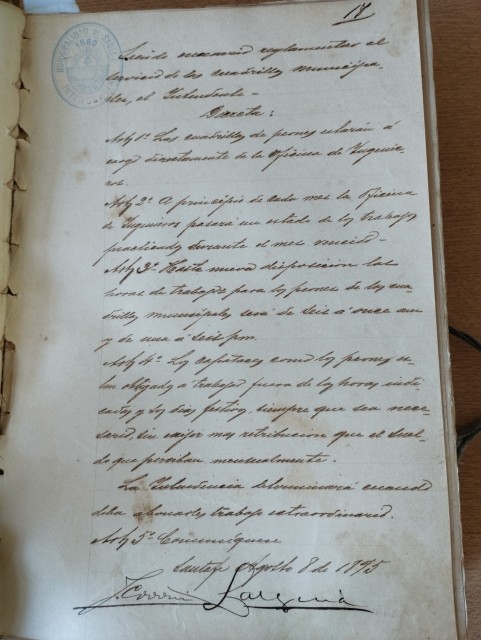 17
Siendo necesario reglamentar el
servicio de las cuadrillas municipa-
les, el Intendente -
Decreta:
Art. 1º Las cuadrillas de peones estarán á
cargo directamente de la Oficina de Ingenie-
ros.
Art 2º A principio de cada mes la Oficina
de Ingenieros pasará un estado de los trabajos
practicados durante el mes vencido -
Art 3º Hasta nueva disposicion las
horas de trabajo para los peones de las cua-
drillas municipales será de seis á once am
y de una á seis pm.
Art 4º Los capataces como los peones es-
tan obligados a trabajar fuera de las horas indi-
cadas y los dias festivos, siempre que sea nece-
sario, sin exijir mas retribucion que el suel-
do que perciban mensualmente.
La Intendencia determinará cuando
deba abonarles trabajo extraordinario.
Art 5º Comuníquese
Santa Fe Agosto 8 de 1895